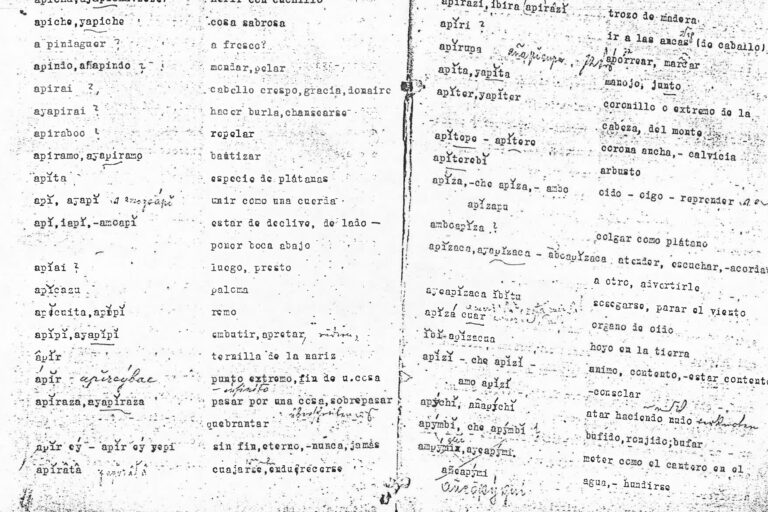 apiche,yapiche cosa sabrosa
a pindaguer ? a fresco?
apindo,añapindo ? mondar,pelar
apirai ?, cabello crespo,gracia,donaire
ayapirai ? hacer burla,chancearse
apiraboo ? repelar
apiramo,ayapiramo bautizar
apĭta especie de plátanas
apĭ, ayapĭ unir como una cuerda
apĭ,iapĭ,-amoapĭ estar de declive, de lado —
poner boca abajo
apĭai ? luego, presto
apĭcazu paloma
apĭcuita,apĭpĭ remo
apĭpĭ,ayapĭpĭ embutir,apretar,
ăpĭr ternilla de la nariz
ăpĭr - punto extremo,fin de u.cosa
apĭraza,ayapĭraza pasar por una cosa,sobrepasar
quebrantar
apĭr eỹ - apĭr eỹ yepi sin fin,eterno,-nunca,jamás
apĭrâtâ cuajarse,endurecerse
apĭrazĭ,ibĭra apĭrazĭ trozo de madera
apĭri ? ir a las ancas (de caballo)
apĭrupa aporrear, marcar
apĭta,yapĭta manojo, junto
apĭter,yapĭter coronillo o extremo de la
cabeza, del monte
apĭtepe - apĭtere corona ancha,- calvicia
apĭterebĭ arbusto
apĭza,-che apĭza,- ambo oido - oigo - reprender
apĭzapu
amboapĭza ? colgar como plátano
apĭzaca,ayapĭzaca - aboapĭzaca atender, escuchar,-acordar
a otro, divertirle
ayeapĭzaca ĭbĭtu sosegarse, parar el viento
apĭzá cuar organo de oido
ĭbĭ apĭzacua hoyo en la tierra
apĭzĭ - che apĭzĭ - animo, contento,-estar contento
amo apĭzĭ -consolar
apỹchĭ, añapỹchĭ atar haciendo nudo
apỹmbĭ, che apỹmbĭ bufido,ronjido;bufar
meter como el cantero en el
añeapỹmi agua,- hundirse